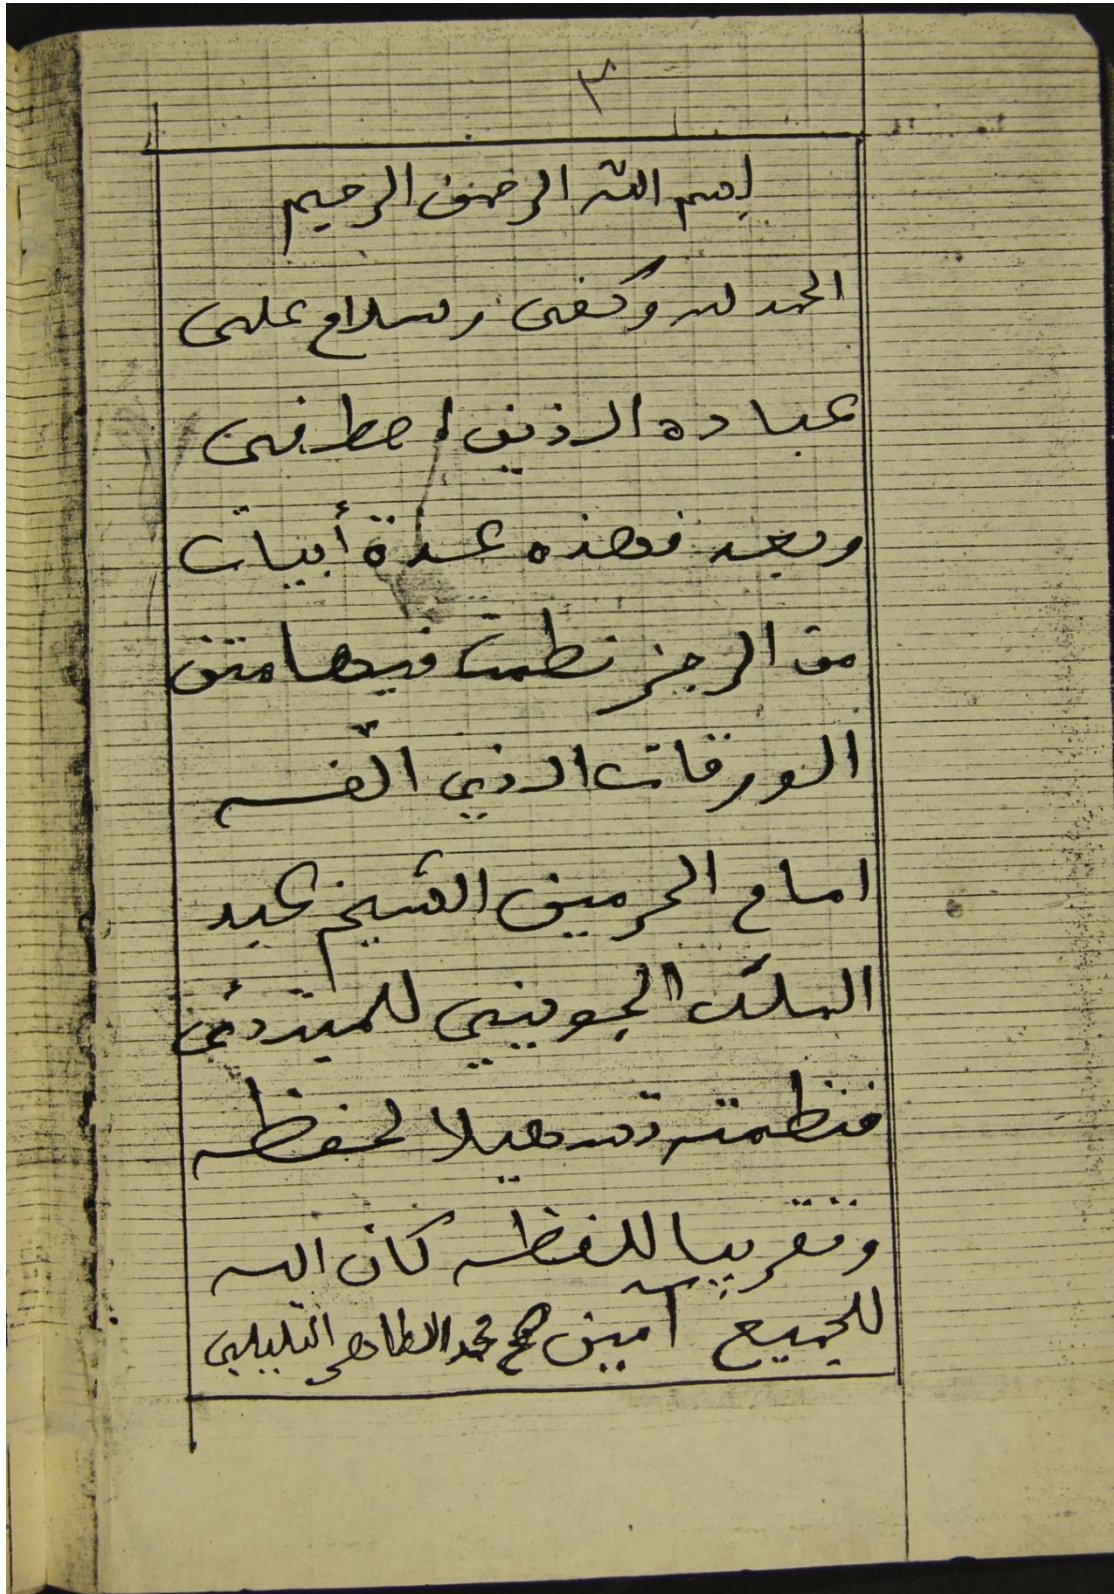 ٣
بسم الله الرحمن الرحيم
الحمد لله وكفى وسلام على
عباده الذين اصطفى
وبعد فهذه عدة أبيات
من الرجز نظمت فيها متن
الورقات الذي الفه
امام الحرمين الشيخ عبد
الملك الجويني للمبتدئي
فنظمته تسهيلا لحفظه
وتقريبا للفظه كان الله
للجميع آمين محمد الطاهر التليلي